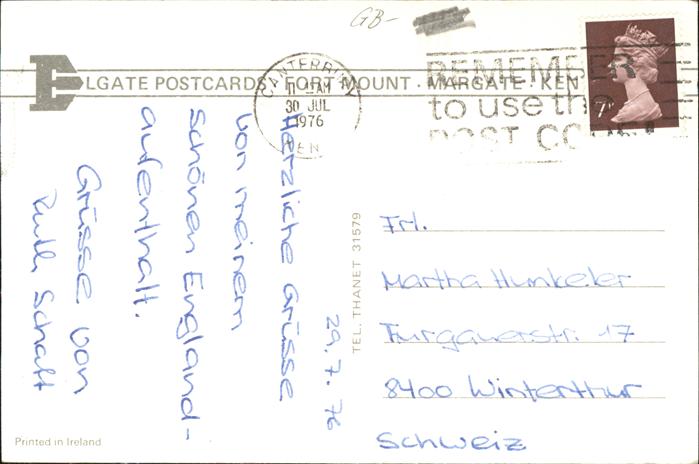 GB-
ELGATE POSTCARDS · FORT MOUNT · MARGATE · KEN
CANTERBURY
11 - AM
30 JUL
1976
KENT
REMEMBER
to use the
POST CODE
7P
29.7.76
Herzliche Grüsse
von meinem
schönen England-
aufenthalt.
Grüsse von
Ruth Schatt
TEL. THANET 31579
Frl.
Martha Hunkeler
Turgauerstr. 17
8400 Winterthur
Schweiz
Printed in Ireland